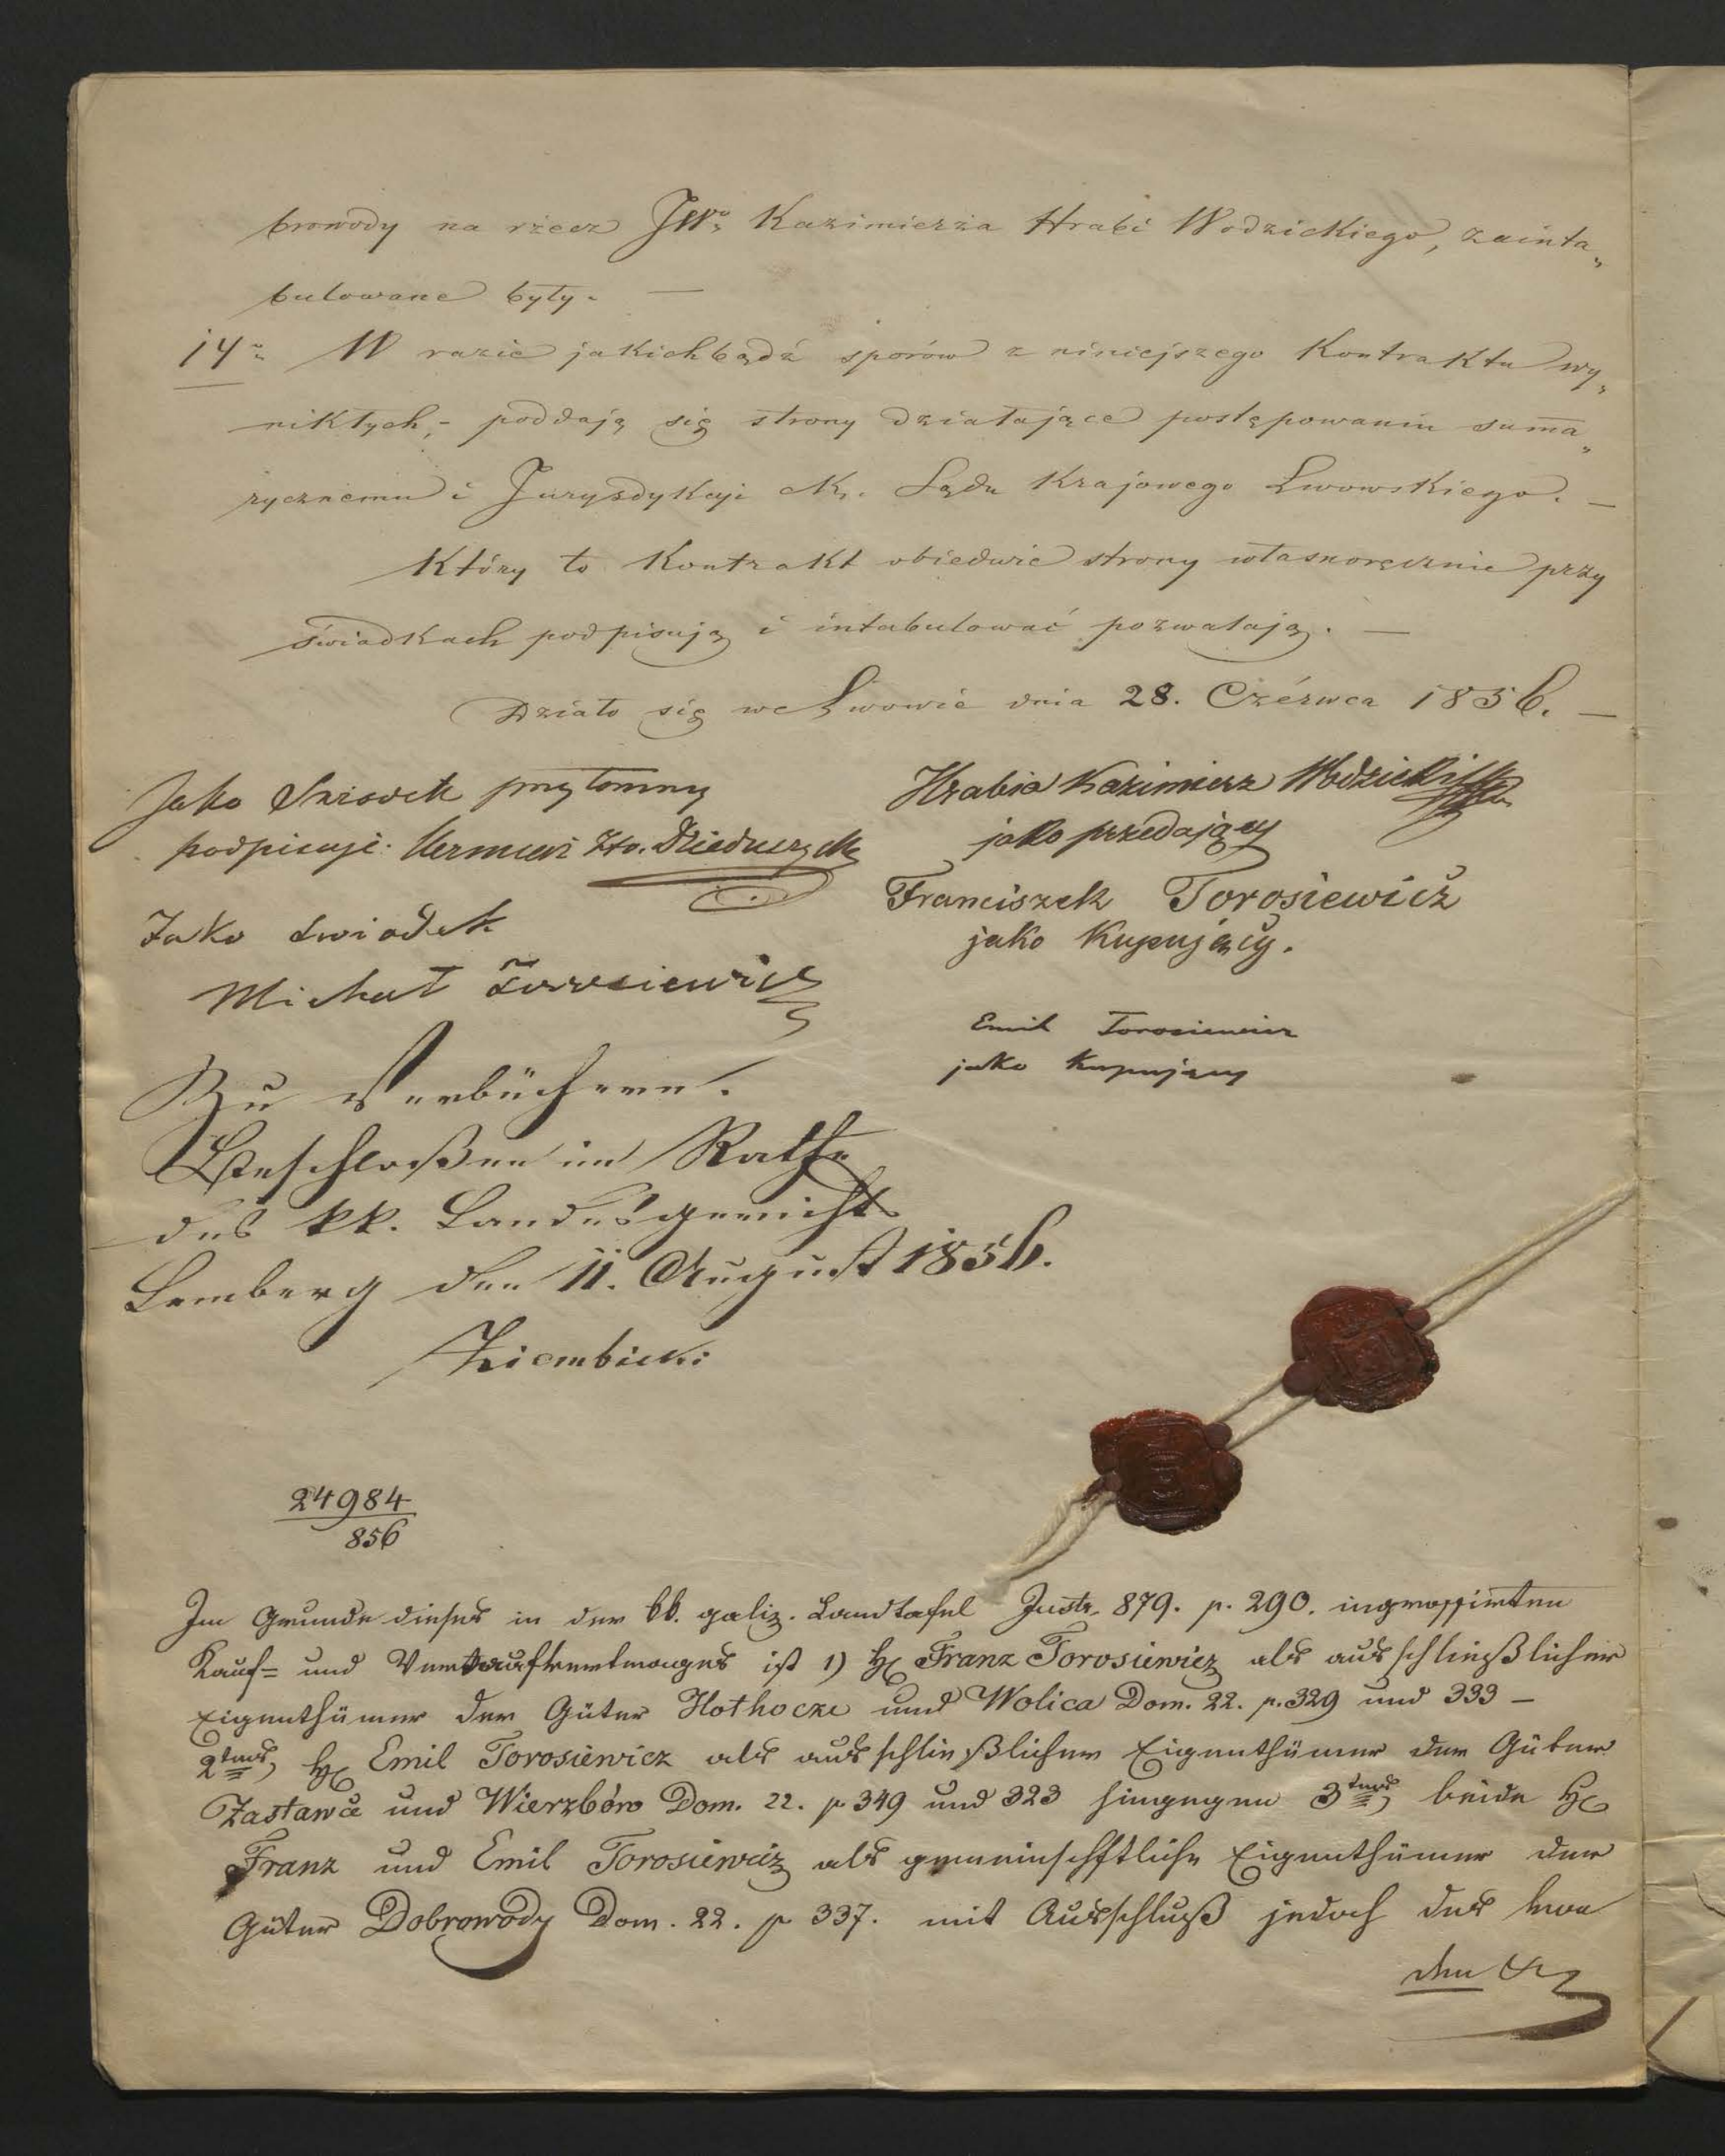 browody na rzecz JWo Kazimierza Hrabi Wodzickiego, zainta„
bulowane były. —
14o W razie jakichbądź sporów z niniejszego Kontraktu wy„
nikłych, - poddają się strony działające postępowaniu suma„
rycznemu i Jurysdykcyi ck. Sądu Krajowego Lwowskiego. —
Który to Kontrakt obiedwie strony własnoręcznie przy
świadkach podpisują i intabulować pozwalają. —
Działo się we Lwowie dnia 28. Czérwca 1856. —
Jako Swiadek przytomny
podpisuję Hr. Dzieduszycki
Jako swiadek
Michał Torosiewicz
Hrabia Kazimierz Wodzicki
jako przedający
Franciszek Torosiewicz
jako Kupujący.
Emil Torosiewicz
jako Kupujący
Zu Verbüchern.
Beschloßen im Rathe
des kk. Landesgerichts
Lemberg den 11. August 1856.
Ziembicki
24984
856
Im Grunde dieses in der kk. galiz. Landtafel Instr. 879. p. 290. ingrossirten
Kauf= und Verkaufvertrages ist 1) H. Franz Torosiewicz als ausschließlicher
Eigenthümer der Güter Hołhocze und Wolica Dom. 22. p. 329 und 333 –
2tens, H. Emil Torosiewicz als ausschließlicher Eigenthümer der Güter
Zastawce und Wierzbów Dom. 22. p 349 und 323 hingegen 3tens, beide H.
Franz und Emil Torosiewicz als gemeinschftliche Eigenthümer der
Güter Dobrowody Dom. 22. p 337. mit Ausschluß jedoch des